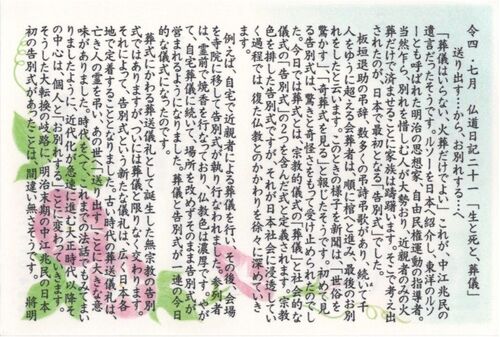 令四・七月　仏道日記二十一　「生と死と、葬儀」
送り出す…から、お別れする…へ
「葬儀はいらない、火葬だけでよい」これが、中江兆民の
遺言だったそうです。ルソーを日本へ紹介し、東洋のルソ
ーとも呼ばれた明治の思想家、自由民権運動の指導者。
当然乍ら、別れを惜しむ人が大勢おり、近親者のみの火
葬だけで済ませることに家族は躊躇います。そこで考え出
されたのが、日本で最初となる「告別式」でした。
板垣退助の弔辞、数多の弔詩弔歌があり、続いて千
人をゆうに超える会葬者は、順に棺へと進み、最後のお別
れをしたと云います。このときの様子を新聞は、「世俗を
驚かす」「奇葬式を見る」と報じたそうですから、初めて見
る告別式は、驚きと奇怪さをもって受け止められたのでし
た。今日では葬式とは、宗教的儀式の「葬儀」と社会的な
儀式の「告別式」の2つを含んだ式と定義されます。宗教
色を排した告別式ですが、それが日本社会に浸透してい
く過程では、復た仏教とのかかわりを徐々に深めていき
ます。
例えば、自宅で近親者による葬儀を行い、その後、会場
を寺院に移して告別式が執り行なわれました。参列者
は、霊前で焼香を行なっており、仏教色は濃厚です。やが
て、自宅葬儀に続いて、場所を改めずそのまま告別式が
営まれるようになりました。葬儀と告別式が一連の今日
的な儀式になったのです。
葬式にかわる葬送儀礼として誕生した無宗教の告別
式ではありますが、ついには葬儀と限りなく交わります。
それによって、告別式という新たな儀礼は、広く日本各
地で定着することとなりました。古い時代の葬送儀礼は、
亡き人の霊を弔い、あの世へ「送り出す」ことに大きな意
味がありました。時代をへて、これまでの法話にてみてまい
りましたように、近代化が急速に進む大正時代以降、そ
の中心は「個人」に「お別れする」ことに変わっていきます。
そうした大転換の岐路に、明治末期の中江兆民の日本
初の告別式があったことは、間違い無さそうです。　將明